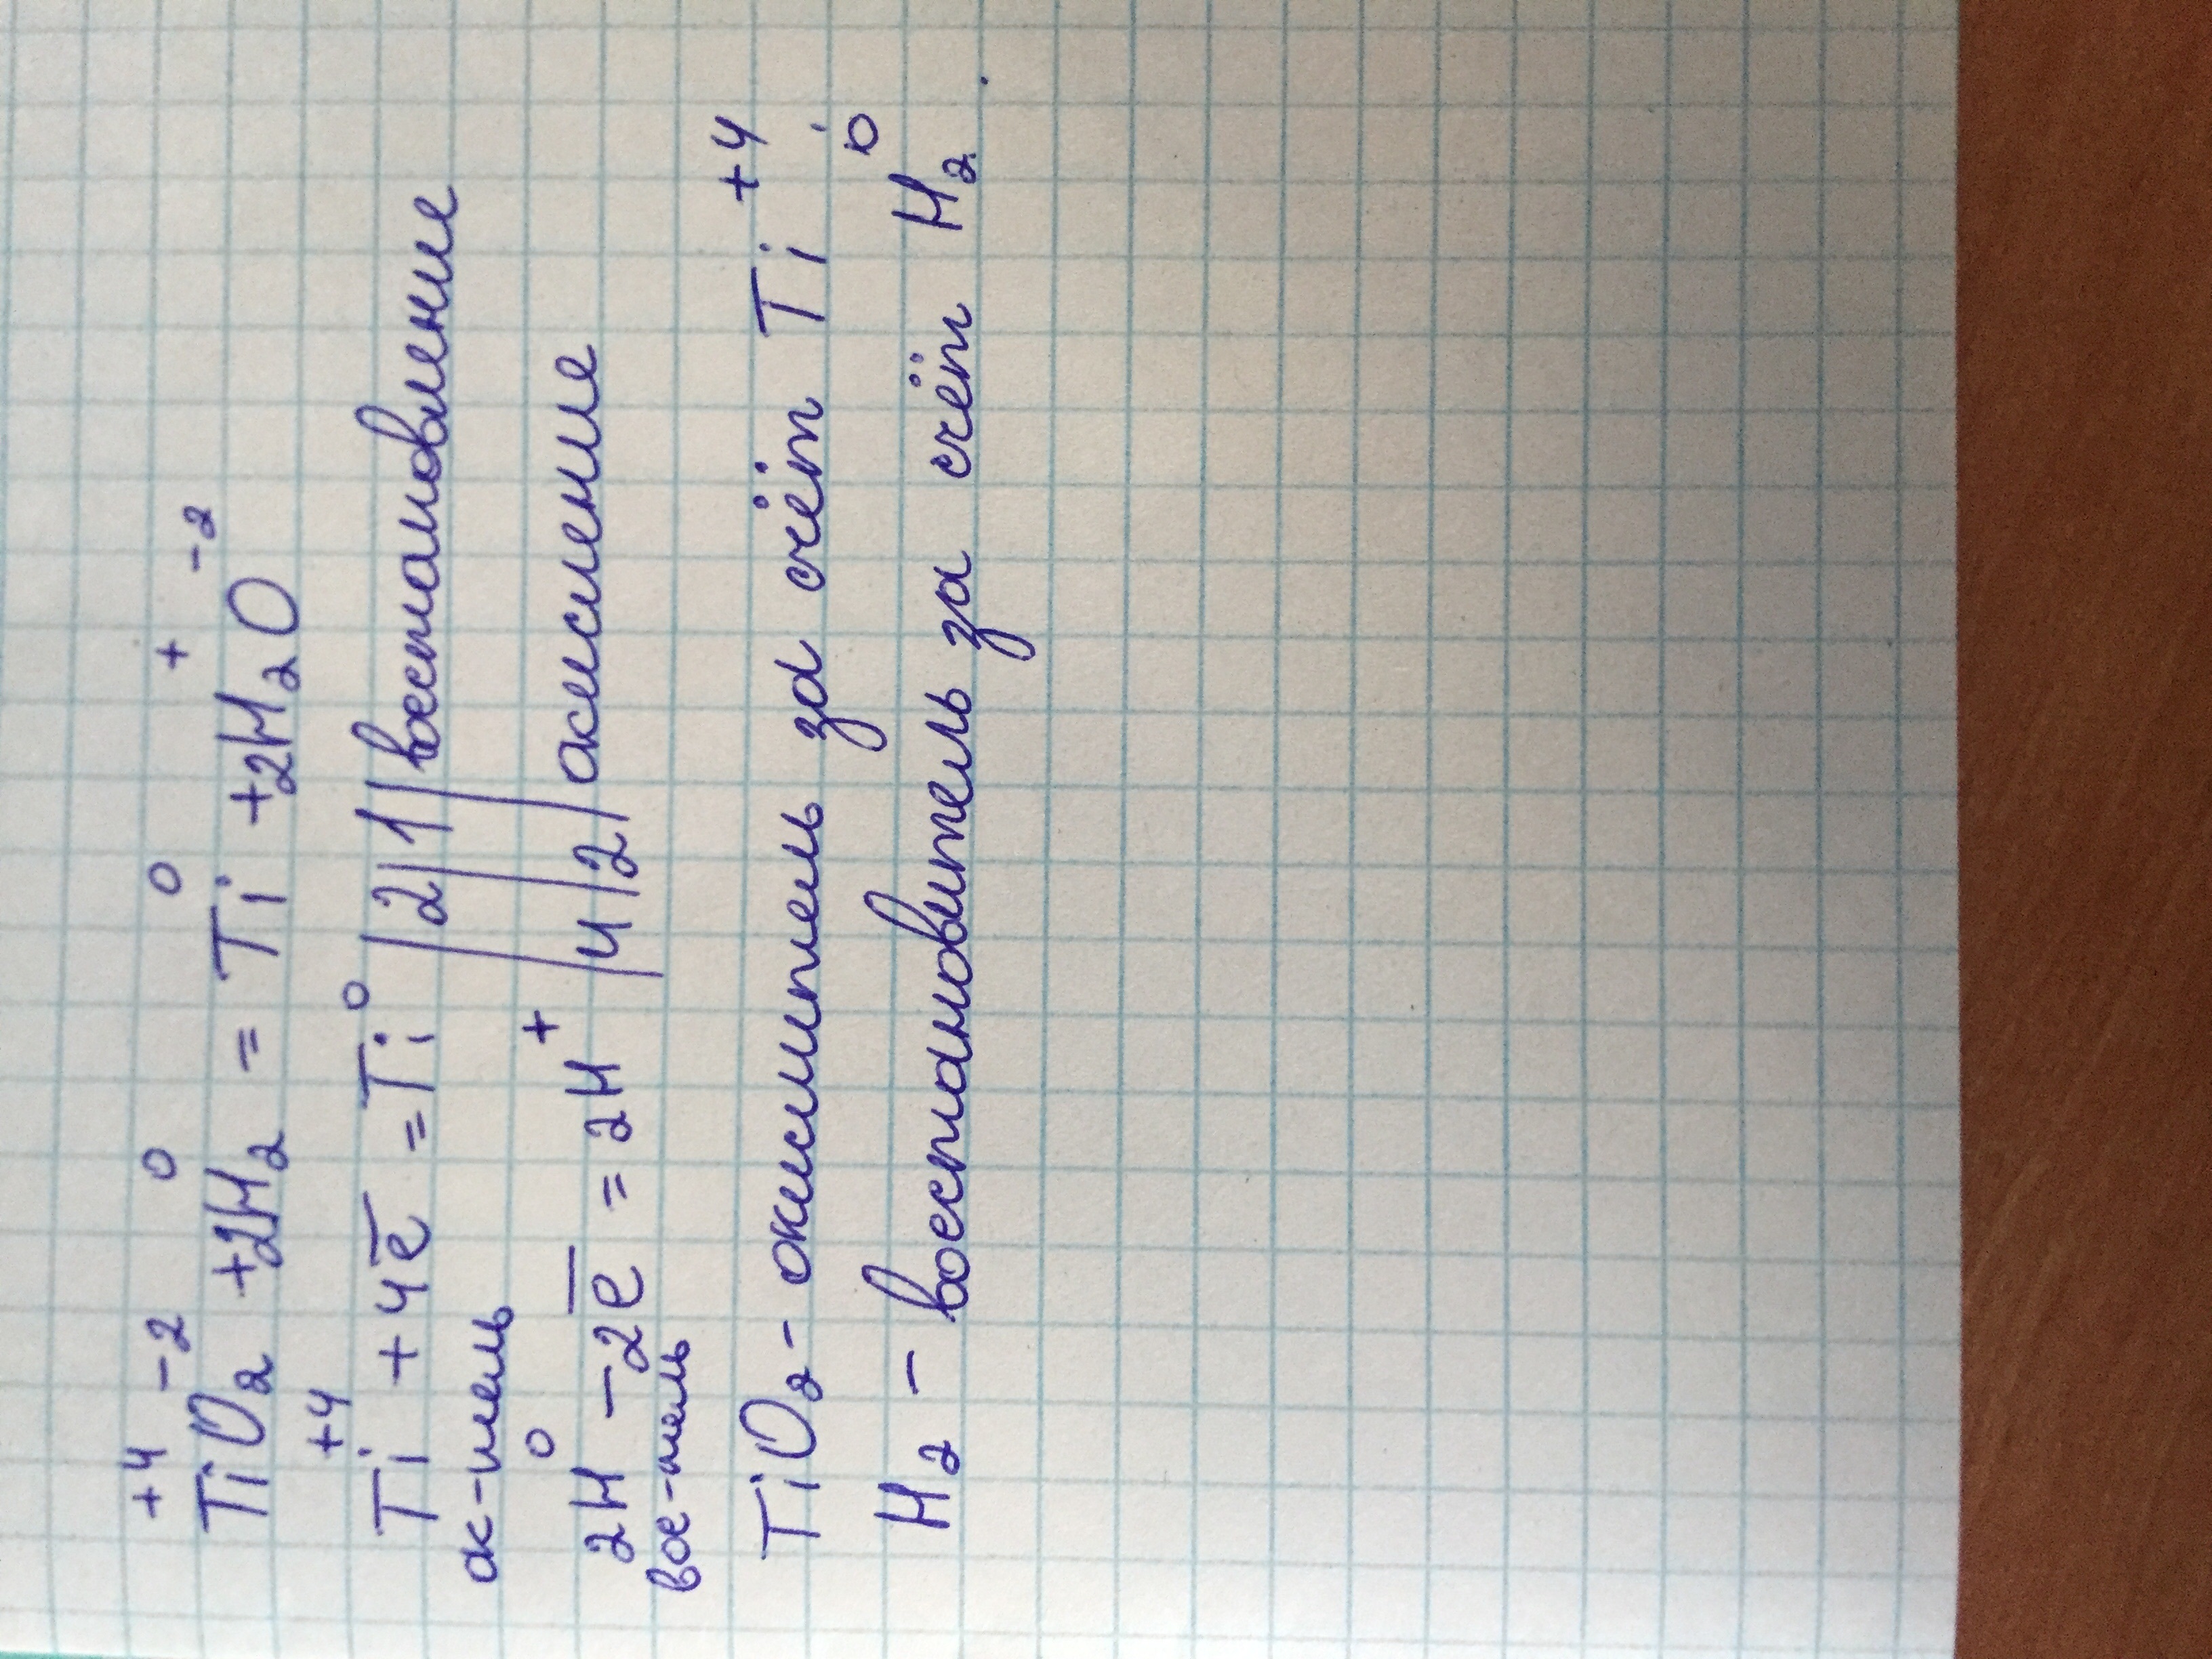 +4 -2 0 0 + -2
TiO₂ + 2H₂ = Ti + 2H₂O
Ti⁺⁴ + 4e̅ = Ti⁰ |2|1| восстановление
ок-тель
2H⁰ - 2e̅ = 2H⁺ |4|2| окисление
вос-тель
TiO₂ - окислитель за счёт Ti⁺⁴
H₂ - восстановитель за счёт H₂⁰.